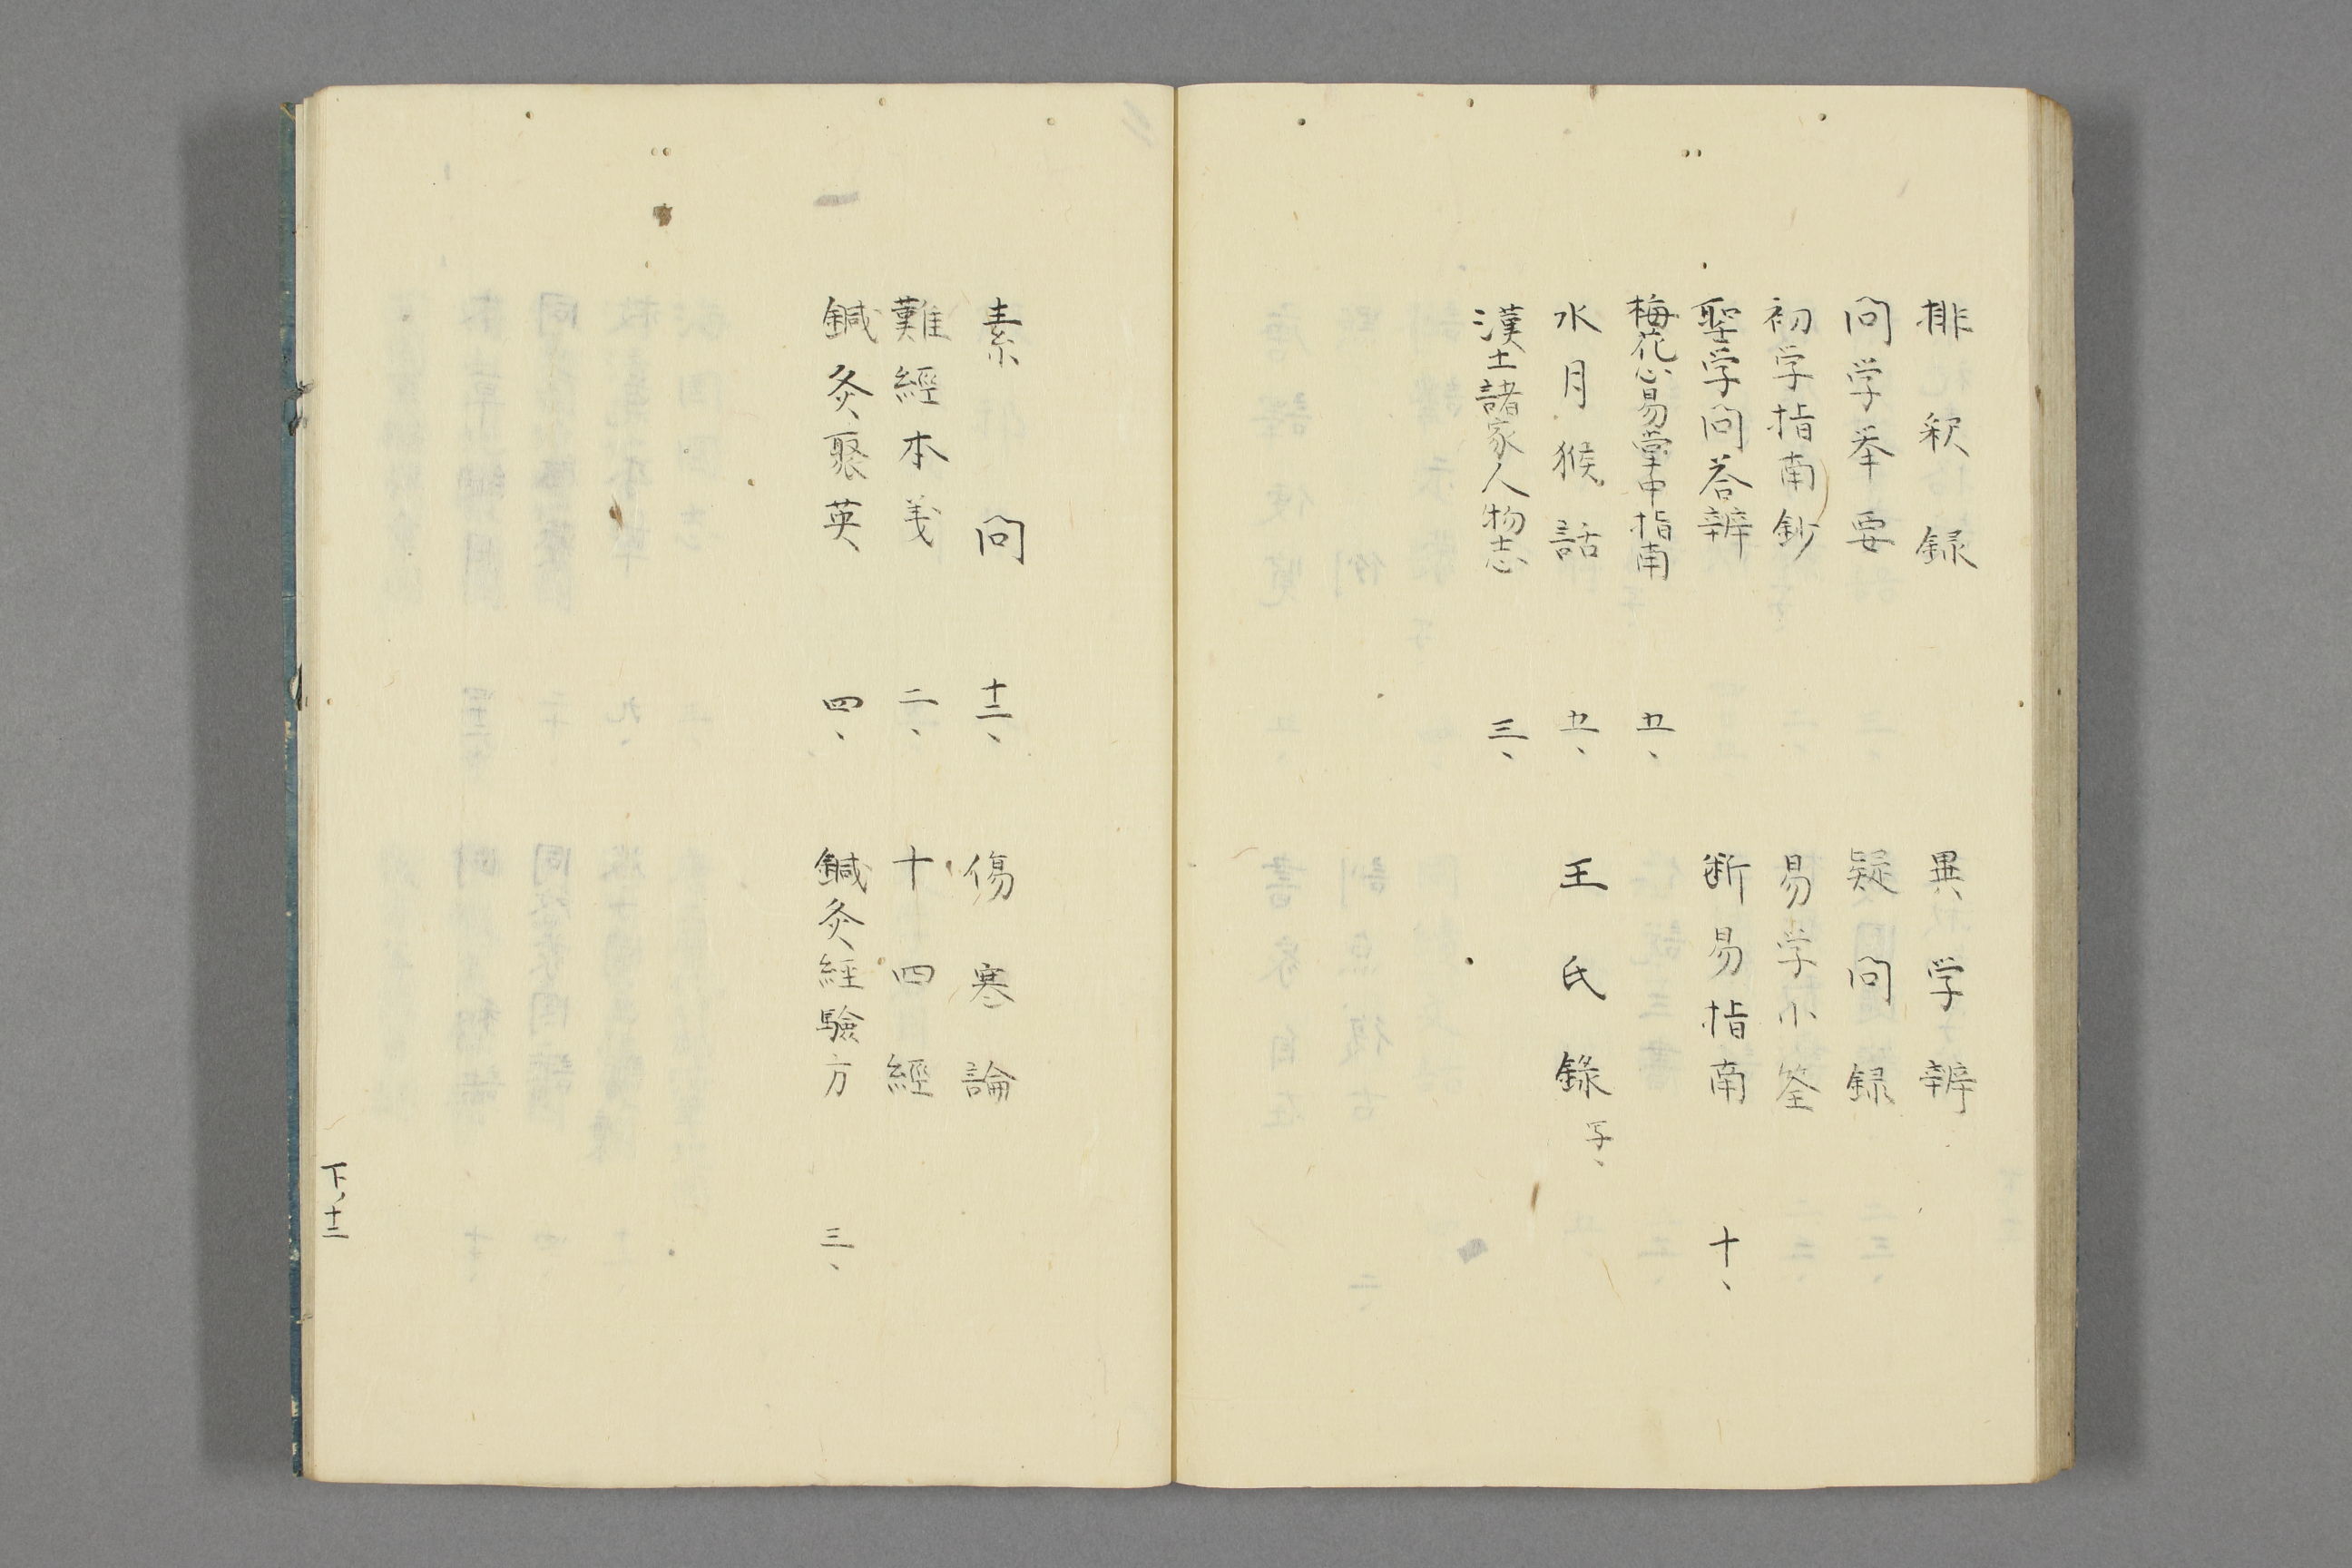 排釈録　異学辨
問学挙要　疑問録
初学指南鈔　易学小筌
聖学問答辨　断易指南　十、
梅花心易掌中指南　五、
水月猴話　五、　王氏録　写、
漢土諸家人物志　三、
素問　十二、　傷寒論
難經本義　二、　十四經
鍼灸聚英　四、　鍼灸経驗方　三、
下、十二